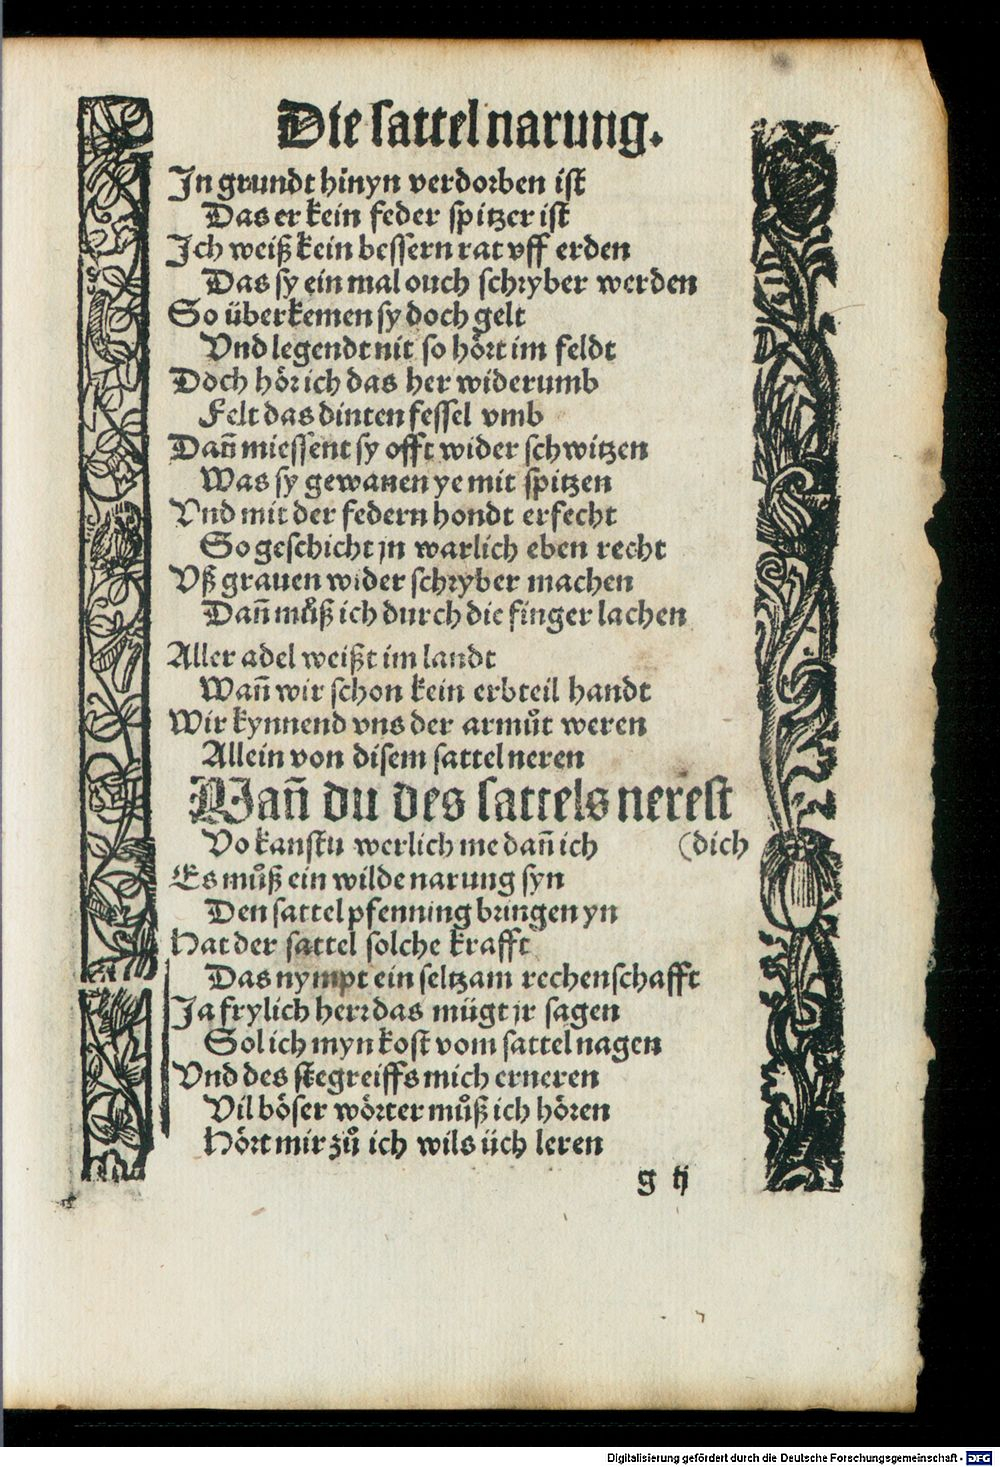 Die sattel narung.
In grundt hinyn verdorben ist
Das er kein feder spitzer ist
Ich weiß kein bessern rat vff erden
Das sy ein mal ouch schryber werden
So überkemen sy doch gelt
Vnd legendt nit so hört im feldt
Doch hör ich das her widerumb
Felt das dinten fessel vmb
Dañ miessent sy offt wider schwitzen
Was sy gewanen ye mit spitzen
Vnd mit der federn hondt erfecht
So geschicht jn warlich eben recht
Vß grauen wider schryber machen
Dañ můß ich durch die finger lachen
Aller adel weißt im landt
Wañ wir schon kein erbteil handt
Wir kynnend vns der armůt weren
Allein von disem sattel neren
Wañ du des sattels nerest
Vo kanstu werlich me dañ ich (dich
Es můß ein wilde narung syn
Den sattel pfenning bringen yn
Hat der sattel solche krafft
Das nympt ein seltzam rechenschafft
Ja frylich herr das mügt jr sagen
Sol ich myn kost vom sattel nagen
Vnd des stegreiffs mich erneren
Vil böser wörter můß ich hören
Hört mir zů ich wils üch leren
g ij
Digitalisierung gefördert durch die Deutsche Forschungsgemeinschaft - DFG